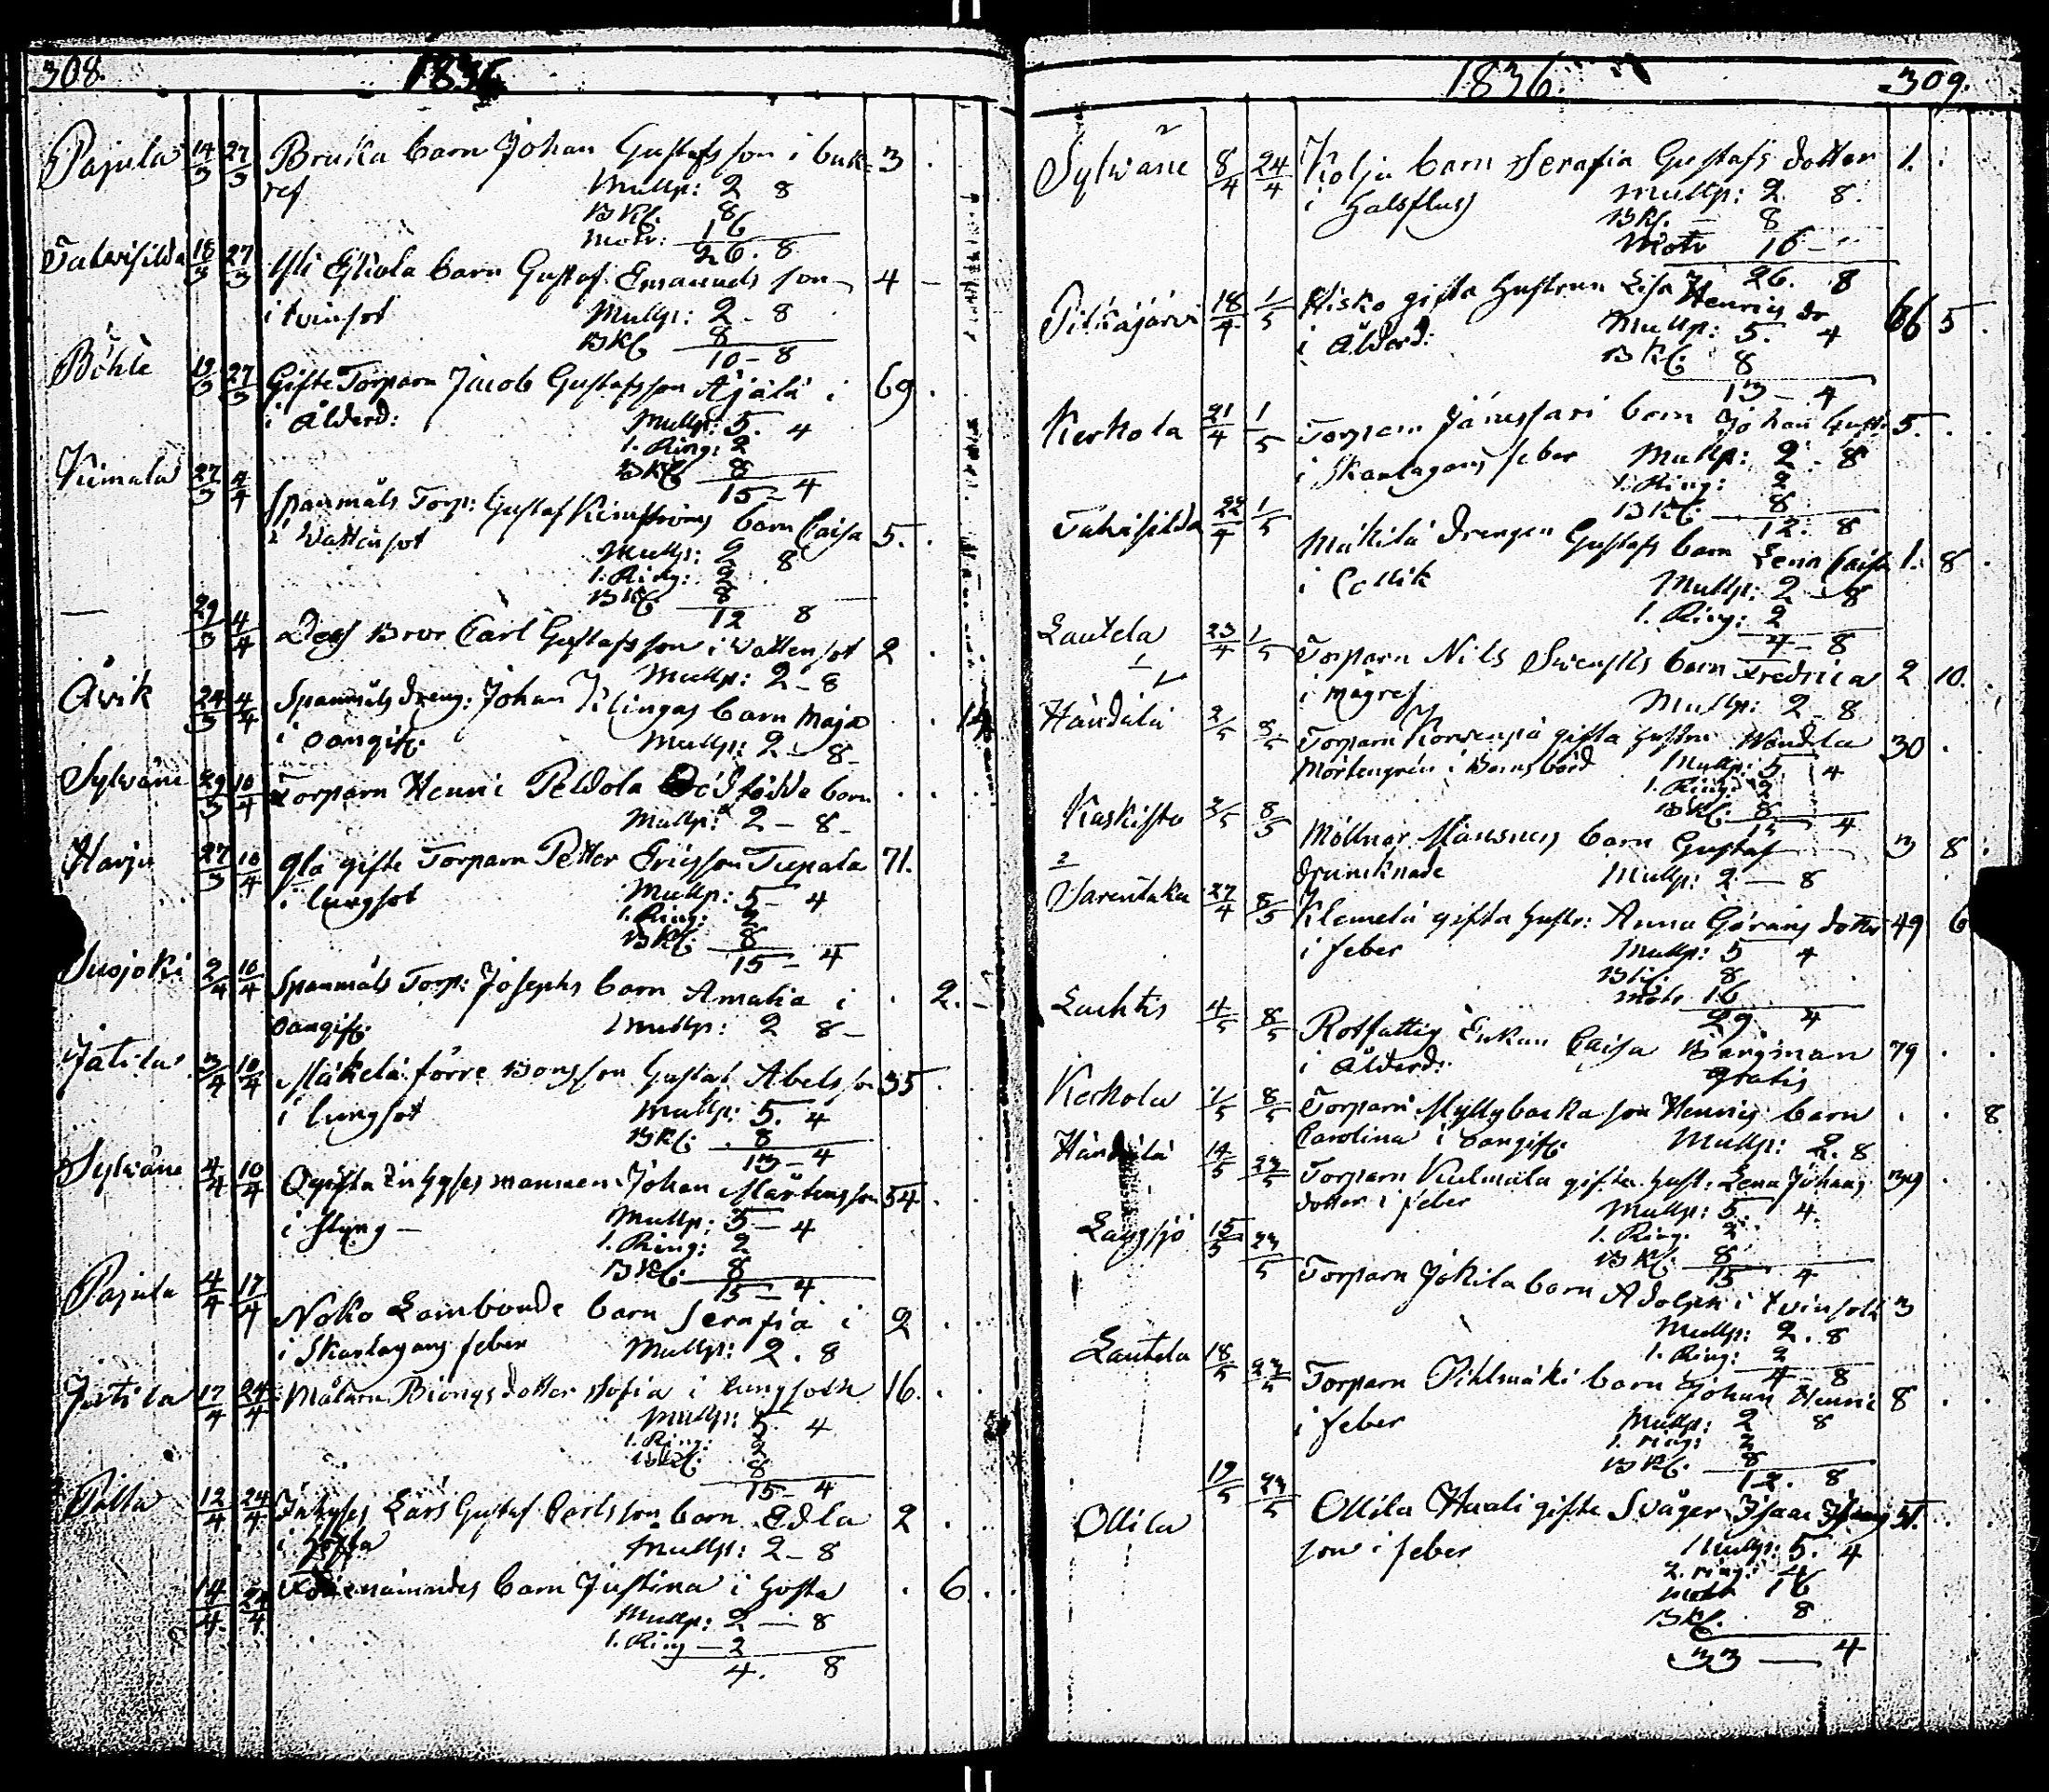 308. 1836
Pajula 14/3 27/3 Bruka barn Johan Gustafsson i buk= 3
ref Mullp: 2 8
BKl. 8
Motr: 16
26. 8
18/3 27/3 Yli Eskola barn Gustaf Emanuels son 4
i tvinsot Mullp: 2 - 8
BKl 8
10 - 8
Böhle 19/3 27/3 Gifte Torparn Jacob Gustafsson Äjälä i 69
i Ålderd: Mullp: 5. 4
1. Ring: 2
BKl 8
15 - 4
Kimala 27/3 4/4 Spanmåls Torp: Gustaf Kimströms barn Caisa 5.
i Vattusot Mullp: 2 8
1. Ring: 2
BKl. 8
12 8
— 29/3 4/4 Dess Bror Carl Gustafsson i Vattensot 2
Mullp: 2 - 8
Åvik 24/3 4/4 Spanmåls dreng: Johan Klingas barn Maja 14
i oangif: Mullp: 2 - 8
Sylväne 29/3 10/4 Torparn Henric Peldola Dödfödde barn
Mullp: 2 - 8
Harju 27/3 10/4 gla gifte Torparn Petter Ericsson Tupala 71.
i lungsot Mullp: 5 - 4
1. Ring: 2
BKl: 8
15 - 4
Susjoki 2/4 10/4 Spanmåls Torp: Josephs barn Amalia i 2.
oangif: Mullp: 2 8
Jätila 3/4 10/4 Mäkelä förre Bonsson Gustaf Abelsson 35
i lungsot Mullp: 5. 4
BKl: 8
13 - 4
Sylväne 4/4 10/4 Ogifta Inhyses mannen Johan Mårtensson 54
i styng - Mullp: 5 - 4
1. Ring: 2
BKl: 8
15 - 4
Pajula 4/4 17/4 Noko Lambonde barn Serafia i 2
i Skarlagans feber Mullp: 2. 8
Jätila 17/4 24/4 Målarn Biongs dotter Sofia i lungsoth 16.
Mullp: 5 4
1. Ring: 2
BKl: 8
15 - 4
Palla 12/4 24/4 Inhyses Lars Gustaf Carlsson barn Edla 2
i hosta Mullp: 2 - 8
14/4 24/4 barn Justina i hosta 6
Mullp: 2 - 8
1. Ring - 2
4. 8
1836. 309.
Sylväne 8/4 24/4 Kolju barn Serafia Gustafs dotter 1.
i halsfluss Mullp: 2. 8.
BKl. 8
Motr 16 -
26. 8
Pitkäjärvi 18/4 1/5 Hisko gifta hustrun Lisa Henrics dr 66 5
i Ålderd: Mullp: 5. 4
BKl. 8
13 - 4
Kerkola 21/4 1/5 Torparn Jänissari barn Johan Gust: 5.
i Skarlagans feber Mullp: 2. 8
1. Ring: 2
BKl: 8
12. 8
22/4 1/5 Mäkilä drengen Gustafs barn Lena Caisa 1. 8
i Collik Mullp: 2 - 8
1. Ring: 2
4 - 8
Lautela 23/4 1/5 Torparn Nils Svensks barn Fredrica 2 10.
i mågref Mullp: 2 - 8
Händälä 2/5 8/5 Torparn Korvenpä gifta hustru Wendla 30
Mörtengren i Barnsbörd Mullp: 5 4
1. Ring: 2
BKl: 8
15 4
Kaskisto 3/5 8/5 Möllnar Mansners barn Gustaf 3 8
drunknade Mullp: 2 - 8
Sarentaka 27/4 8/5 Klemelä gifta hustr: Anna Görans dotter 49 6
i feber Mullp: 5 4
BKl: 8
Motr 16
29. 4
Lachtis 4/5 8/5 Rotfattig Enkan Caisa Bergman 79
i Ålderd: gratis
Kerkola 1/5 8/5 Torparn Myllybacka son Henrics barn 8
Carolina i oangif: Mullp: 2. 8
Händälä 14/5 23/5 Torparn Kulmala gifta hust: Lena Johans 39
dotter i feber Mullp: 5. 4.
1. Ring. 2
BKl. 8
15 4
Långsjö 15/5 23/5 Torparn Jokila barn Adolph i tvinsoth 3
Mullp: 2. 8
1. Ring: 2
4 - 8
Lautela 18/5 23/5 Torparn Pihlmäki barn Johan Henric 8
i feber Mullp: 2 8
1. ring: 2
BKl. 8
12. 8
Ollila 19/5 23/5 Ollila Huali gifte Svåger Isaac Isacs 51.
son i feber Mullp: 5. 4
2. ring: 4
Motr 16
BKl. 8
33 — 4